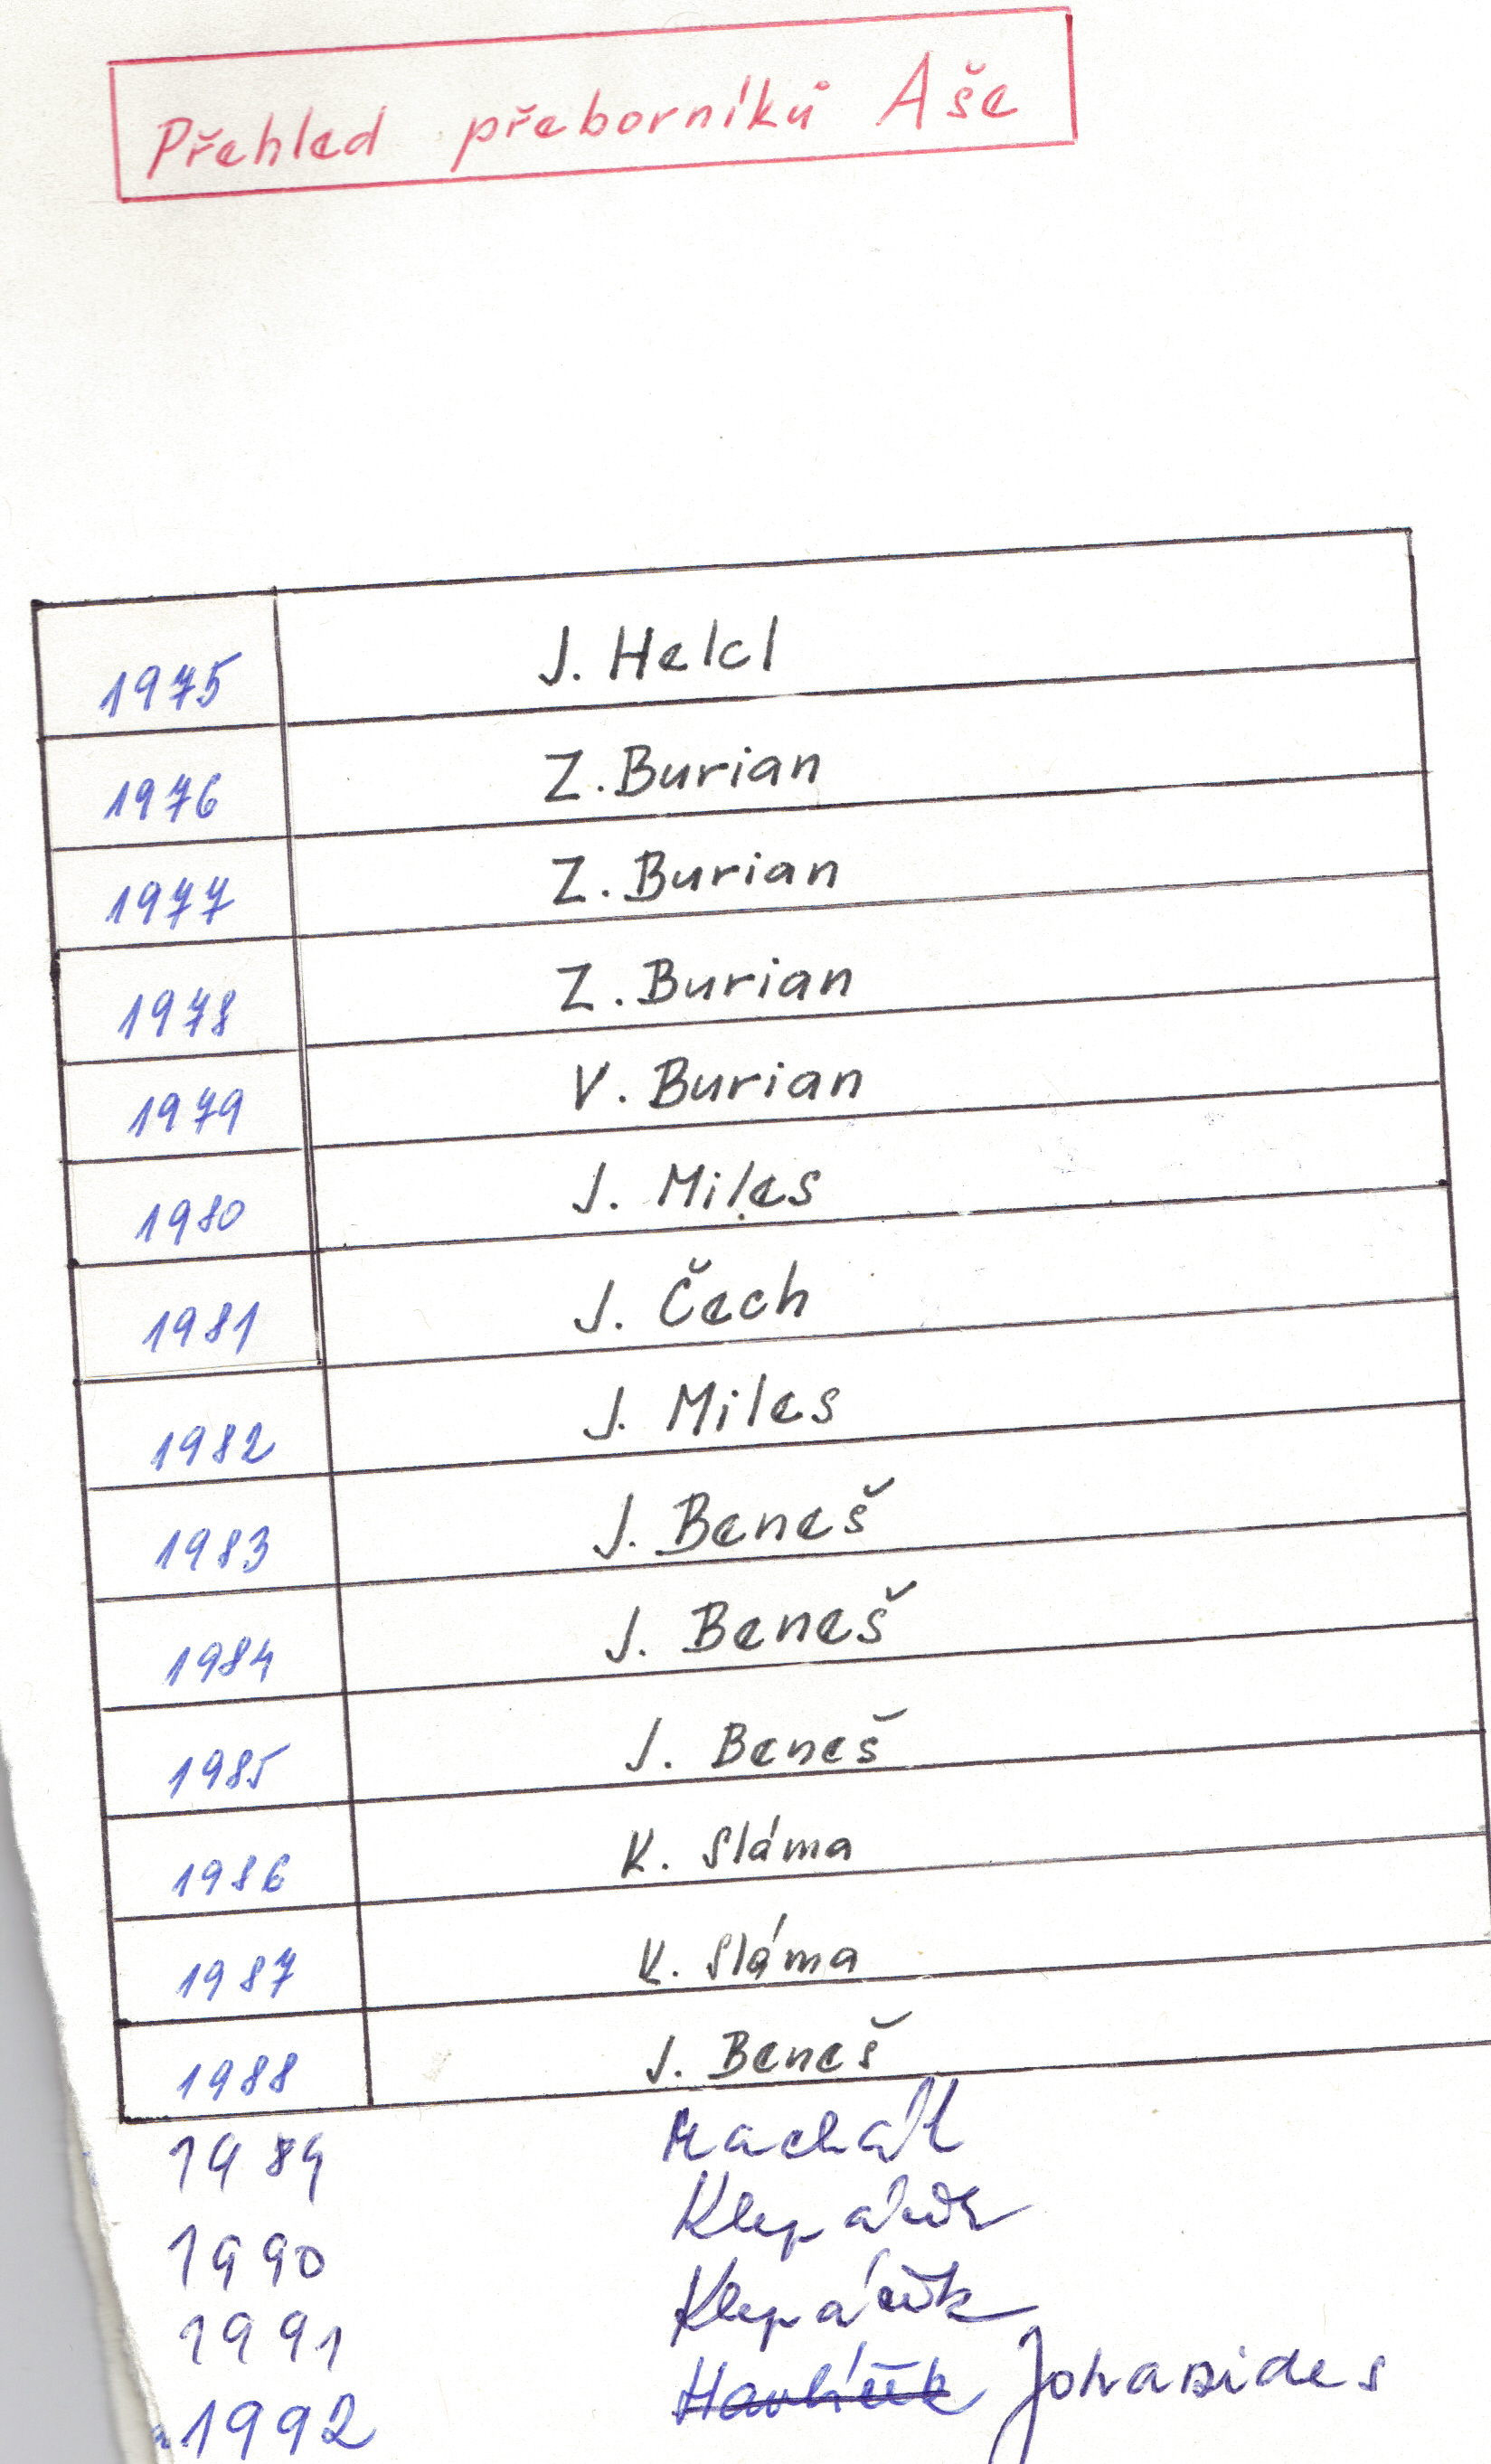 Přehled přeborníků Aše
1975 J. Helcl
1976 Z. Burian
1977 Z. Burian
1978 Z. Burian
1979 V. Burian
1980 J. Miles
1981 J. Čech
1982 J. Miles
1983 J. Beneš
1984 J. Beneš
1985 J. Beneš
1986 K. Sláma
1987 K. Sláma
1988 J. Beneš
1989 Machált
1990 Klepáček
1991 Klepáček
1992 Havlíček Johanides